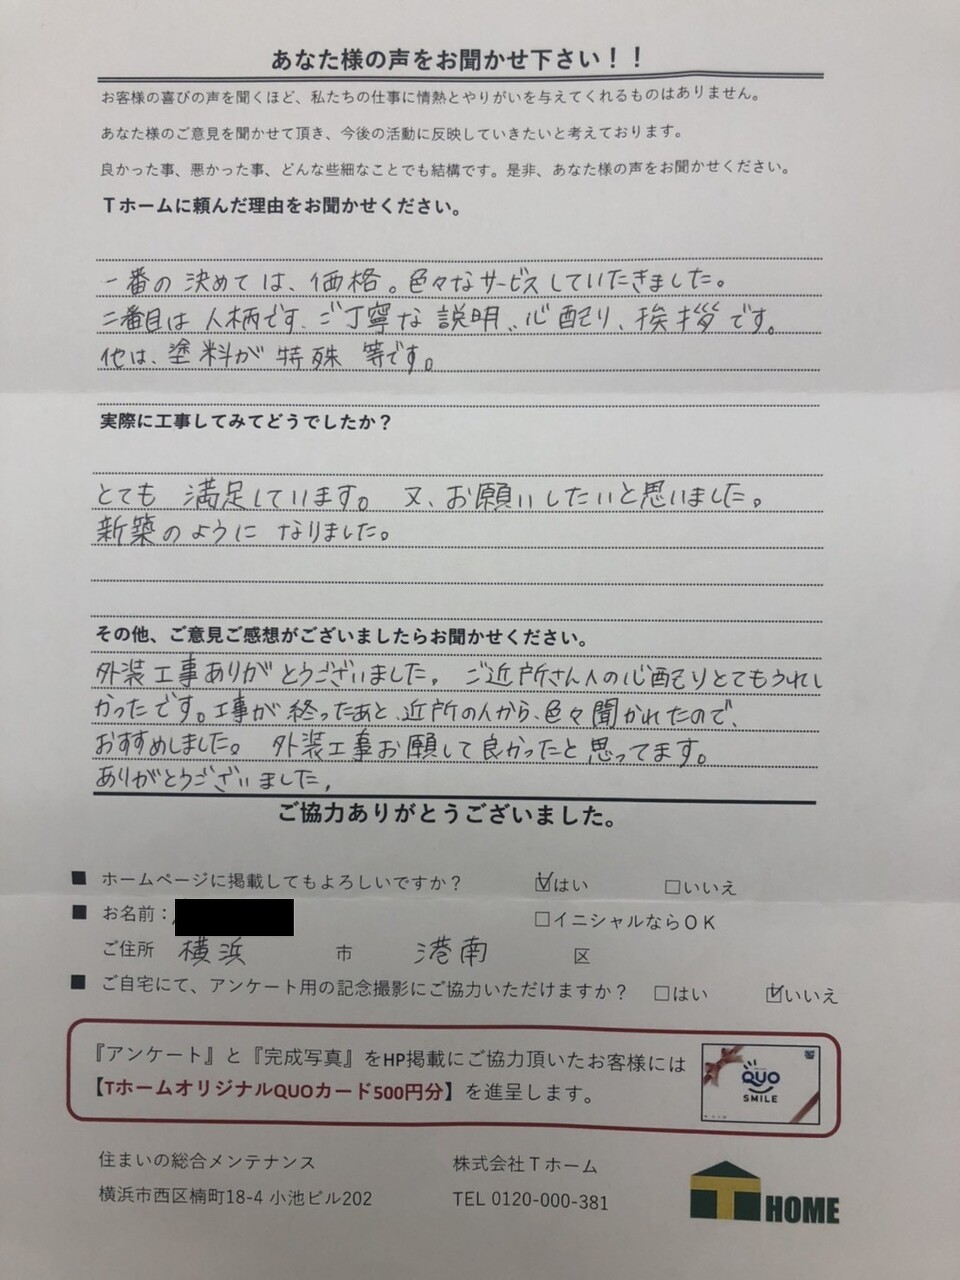 あなた様の声をお聞かせ下さい！！
お客様の喜びの声を聞くほど、私たちの仕事に情熱とやりがいを与えてくれるものはありません。
あなた様のご意見を聞かせて頂き、今後の活動に反映していきたいと考えております。
良かった事、悪かった事、どんな些細なことでも結構です。是非、あなた様の声をお聞かせください。
Ｔホームに頼んだ理由をお聞かせください。
一番の決めては、価格。色々なサービスしていただきました。
二番目は人柄です、ご丁寧な説明、心配り、挨拶です。
他は、塗料が特殊 等です。
実際に工事してみてどうでしたか？
とても 満足しています。 又、お願いしたいと思いました。
新築のように なりました。
その他、ご意見ご感想がございましたらお聞かせください。
外装工事ありがとうございました。 ご近所さん人の心配りとてもうれし
かったです。工事が終ったあと、近所の人から、色々聞かれたので、
おすすめしました。 外装工事お願して良かったと思ってます。
ありがとうございました。
ご協力ありがとうございました。
■ ホームページに掲載してもよろしいですか？ ☑はい □いいえ
■ お名前： □イニシャルならＯＫ
ご住所 横浜 市 港南 区
■ ご自宅にて、アンケート用の記念撮影にご協力いただけますか？ □はい ☑いいえ
『アンケート』と『完成写真』をHP掲載にご協力頂いたお客様には
【TホームオリジナルQUOカード500円分】を進呈します。
QUO
SMILE
住まいの総合メンテナンス 株式会社Ｔホーム
横浜市西区楠町18-4 小池ビル202 TEL 0120-000-381
T HOME